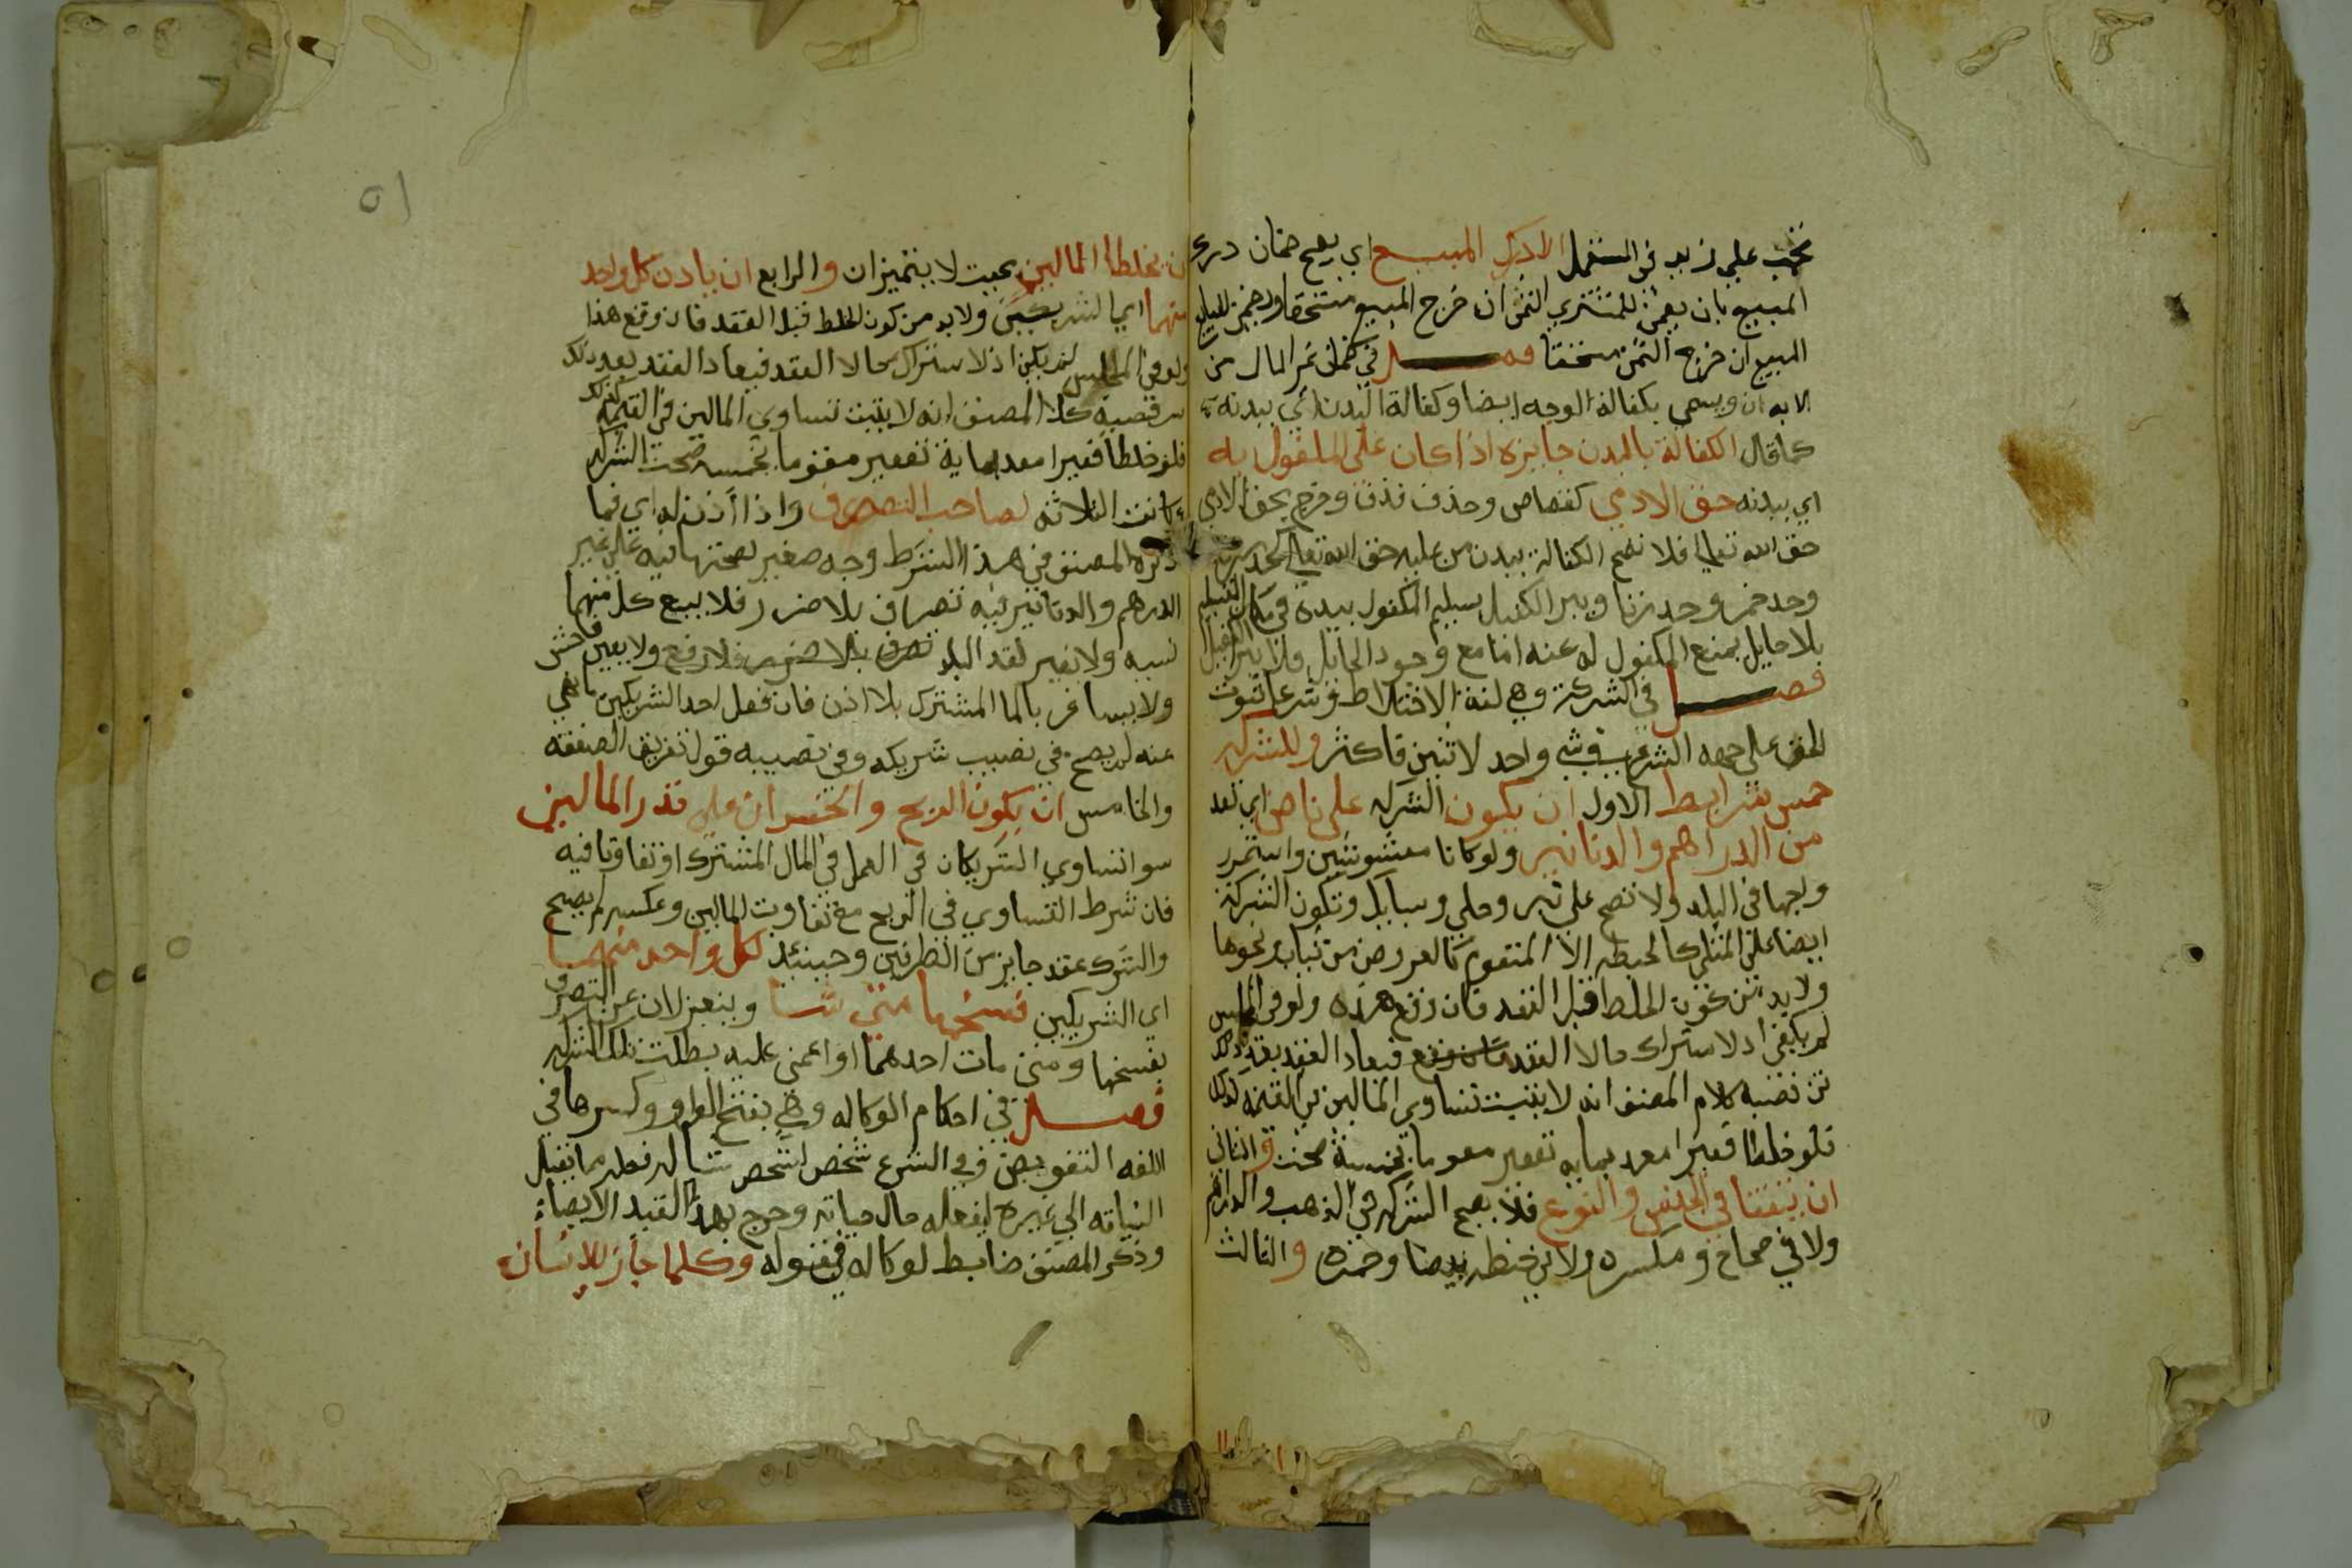 تجب علي زيد في المستقبل الا درك المبيع اي يصح ضمان درك
المبيع بان يضمن للمشتري الثمن ان خرج المبيع مستحقا او يضمن للبايع
المبيع ان خرج الثمن مستحقا فصل في كفالة غير المال من
الابدان ويسمي بكفالة الوجه ايضا وكفالة البدن اي ببدنه
كما قال الكفالة بالبدن جايزه اذا كان علي المكفول به
اي ببدنه حق الادمي كقصاص وحذف قذف وخرج بحق الادمي
حق الله تعالي فلا تصح الكفالة ببدن من عليه حق الله تعالي كحد سرقه
وحد خمر وحد زنا ويبر الكفيل بسليم المكفول ببدنه في مكان التسليم
بلا حايل يمنع المكفول له عنه اما مع وجود الحايل فلا يبرا الكفيل
فصل في الشركة وهي لغة الاختلاط وشرعا ثبوت
الحق علي جهه الشيوع في شي واحد لاثنين فاكثر وللشركه
خمس شرايط الاول ان يكون الشركه علي ناض اي نقد
من الدراهم والدنانير ولو كانا مغشوشين واستمر
رواجها في البلد ولا تصح علي تبر وحلي وسبايك وتكون الشركة
ايضا علي المثلي كالحنطه الا المتقوم كالعروض من ثياب ونحوها
ولا بد من كون الخلط قبل العقد فان وقع هذه ولو في المجلس
لم يكفي اذ لا اشتراك حالا العقد فان وقع فيعاد العقد بعد ذلك
من قضيه كلام المصنف انه لا يثبت تساوي المالين في القيمه كذلك
فلو خلطا قفيزا معه بمايه بقفيز معوما بخمسة صحت والثاني
ان يتفقا في الجنس والنوع فلا يصح الشركه في الذهب والدراهم
ولا في صحاح ومكسره ولا في حنطه بيضا وحمره والثالث
ان يخلطا المالين بحيت لا يتميزان والرابع ان ياذن كل واحد
منهما اي الشريكين ولا بد من كون الخلط قبل العقد فان وقع هذا
ولو في المجلس لم يكن اذ لا اشتراك حالا العقد فيعاد العقد بعد ذلك
من قصية كلا المصنف انه لا يثبت تساوي المالين في القيمه كذلك
فلو خلطا قفيرا معه بماية بقفير مقوما بخمسه صحت الشركه
وكانت الثلاثه لصاحب التصرف واذا أذن له اي فيما
ذكره المصنف في هذا الشرط وجه صغير لصحتها فيه علي غير
الدرهم والدنانير فيه تصرف بلا ضرر فلا يبيع كل منهما
نسيه ولا بغير نقد البلد تصرف بلا ضرر فلا رفع ولا بغبن فاحش
ولا يسافر بالما المشترك بلا اذن فان فعل احد الشريكين ما نهي
عنه لم يصح في نصيب شريكه وفي نصيبه قولا تفريق الصفقه
والخامس ان يكون الربح والخسران علي قدر المالين
سوا تساوي الشريكان في العمل في المال المشترك او تفاوتا فيه
فان شرط التساوي في الربح مع تفاوت المالين وعكسه لم يصح
والشرك عقد جايز من الطرفين وحينئذ لكل واحد منهما
اي الشريكين فسخها متي شا وينعزلان عن التصرف
بفسخها ومتي مات احدهما او اغمي عليه بطلت تلك الشركه
فصل في احكام الوكاله وهي بفتح الواو وكسرها في
اللغه التفويض وفي الشرع شخص لشخص شيا له فعله مما يقبل
النيابه الي غيره ليفعله حال حياته وخرج بهذا القيد الايصاء
وذكر المصنف ضابط لوكاله في قوله وكلما جاز للانسان